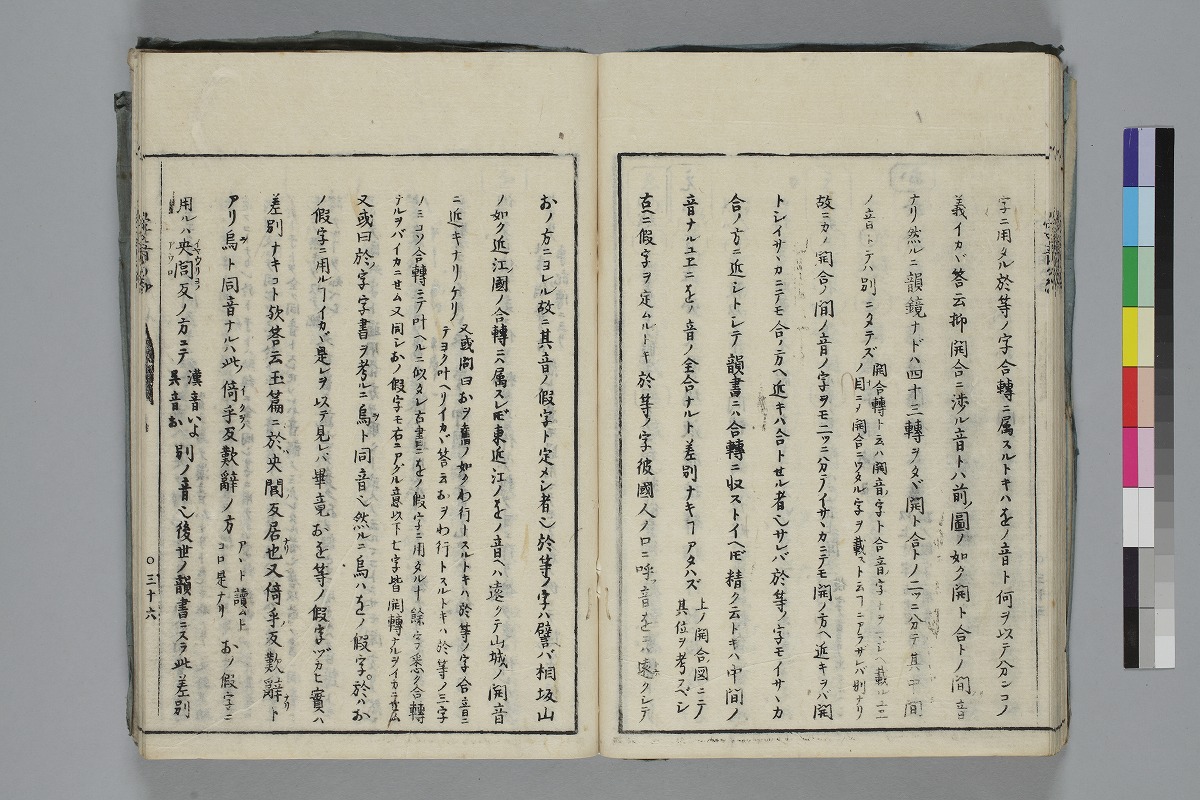 字ニ用タル於等ノ字合轉ニ属スルトキハをノ音ト何ヲ以テ分ンコノ
義イカヾ答云抑開合ニ渉ル音トハ前ノ圖ノ如ク開ト合トノ間ノ音
ナリ然ルニ韻鏡ナドハ四十三轉ヲタヾ開ト合トノ二ツニ分テ其中間
ノ音トテハ別ニタテズ
開合轉ト云ハ開音ノ字ト合音ノ字ト
ノ目ニメ開合ニワタル字ヲ載スト云フニアラサレバ別ナリ
故ニカノ開合ノ間ノ音ノ字ヲモ二ツニ分テイサヽカニテモ開ノ方ヘ近キヲバ開
トシイサヽカニテモ合ノ方ヘ近キハ合トセル者也サレバ於等ノ字モイサヽカ
合ノ方ニ近シトシテ韻書ニハ合轉ニ収ストイヘ𪜈精ク云トキハ中間ノ
音ナルユヱニをノ音ノ全合ナルト差別ナキヿアタハズ
上ノ開合図ニテ
其位ヲ考フベシ
古ヘニ假字ヲ定ムルトキ於等ノ字彼國人ノ口ニ呼ブ音をニハ遠クシテ
おノ方ニヨレル故ニ其音ノ假字ト定メシ者也於等ノ字ハ譬バ相坂山
ノ如ク近江國ノ合轉ニハ属スレ𪜈東近江ノをノ音ヘハ遠クテ山城ノ開音
ニ近キナリケリ
又或問曰おヲ舊ノ如クわ行トスルトキハ於等ノ字合音ニ
テヨク叶ヘリイカヾ答云おヲわ行トスルトキハ於等ノ三字
ノミコソ合轉ニテ叶ヘルニ似タレ古書ニをノ假字ニ用タル十餘字悉ク合轉
ナルヲバイカニセム又同シおノ假字モ右ニアグル意以下七字皆開轉ナルヲイカニセム
又或曰於ノ字字書ヲ考ルニ烏ト同音也然ルニ烏ハをノ假字於ハお
ノ假字ニ用ルヿイカヾ是レヲ以テ見レバ畢竟おを等ノ假字ヅカヒ實ハ
差別ナキコト欤答云玉篇ニ於ハ央閭反居也又倚乎反歎辭ト
アリ烏ト同音ナルハ此ノ倚乎反歎辭ノ方
アヽト讀ムト
コロ是ナリ
おノ假字ニ
用ルハ央閭反ノ方ニテ
漢音いよ
呉音お
別ノ音也後世ノ韻書ニスラ此差別
三十六